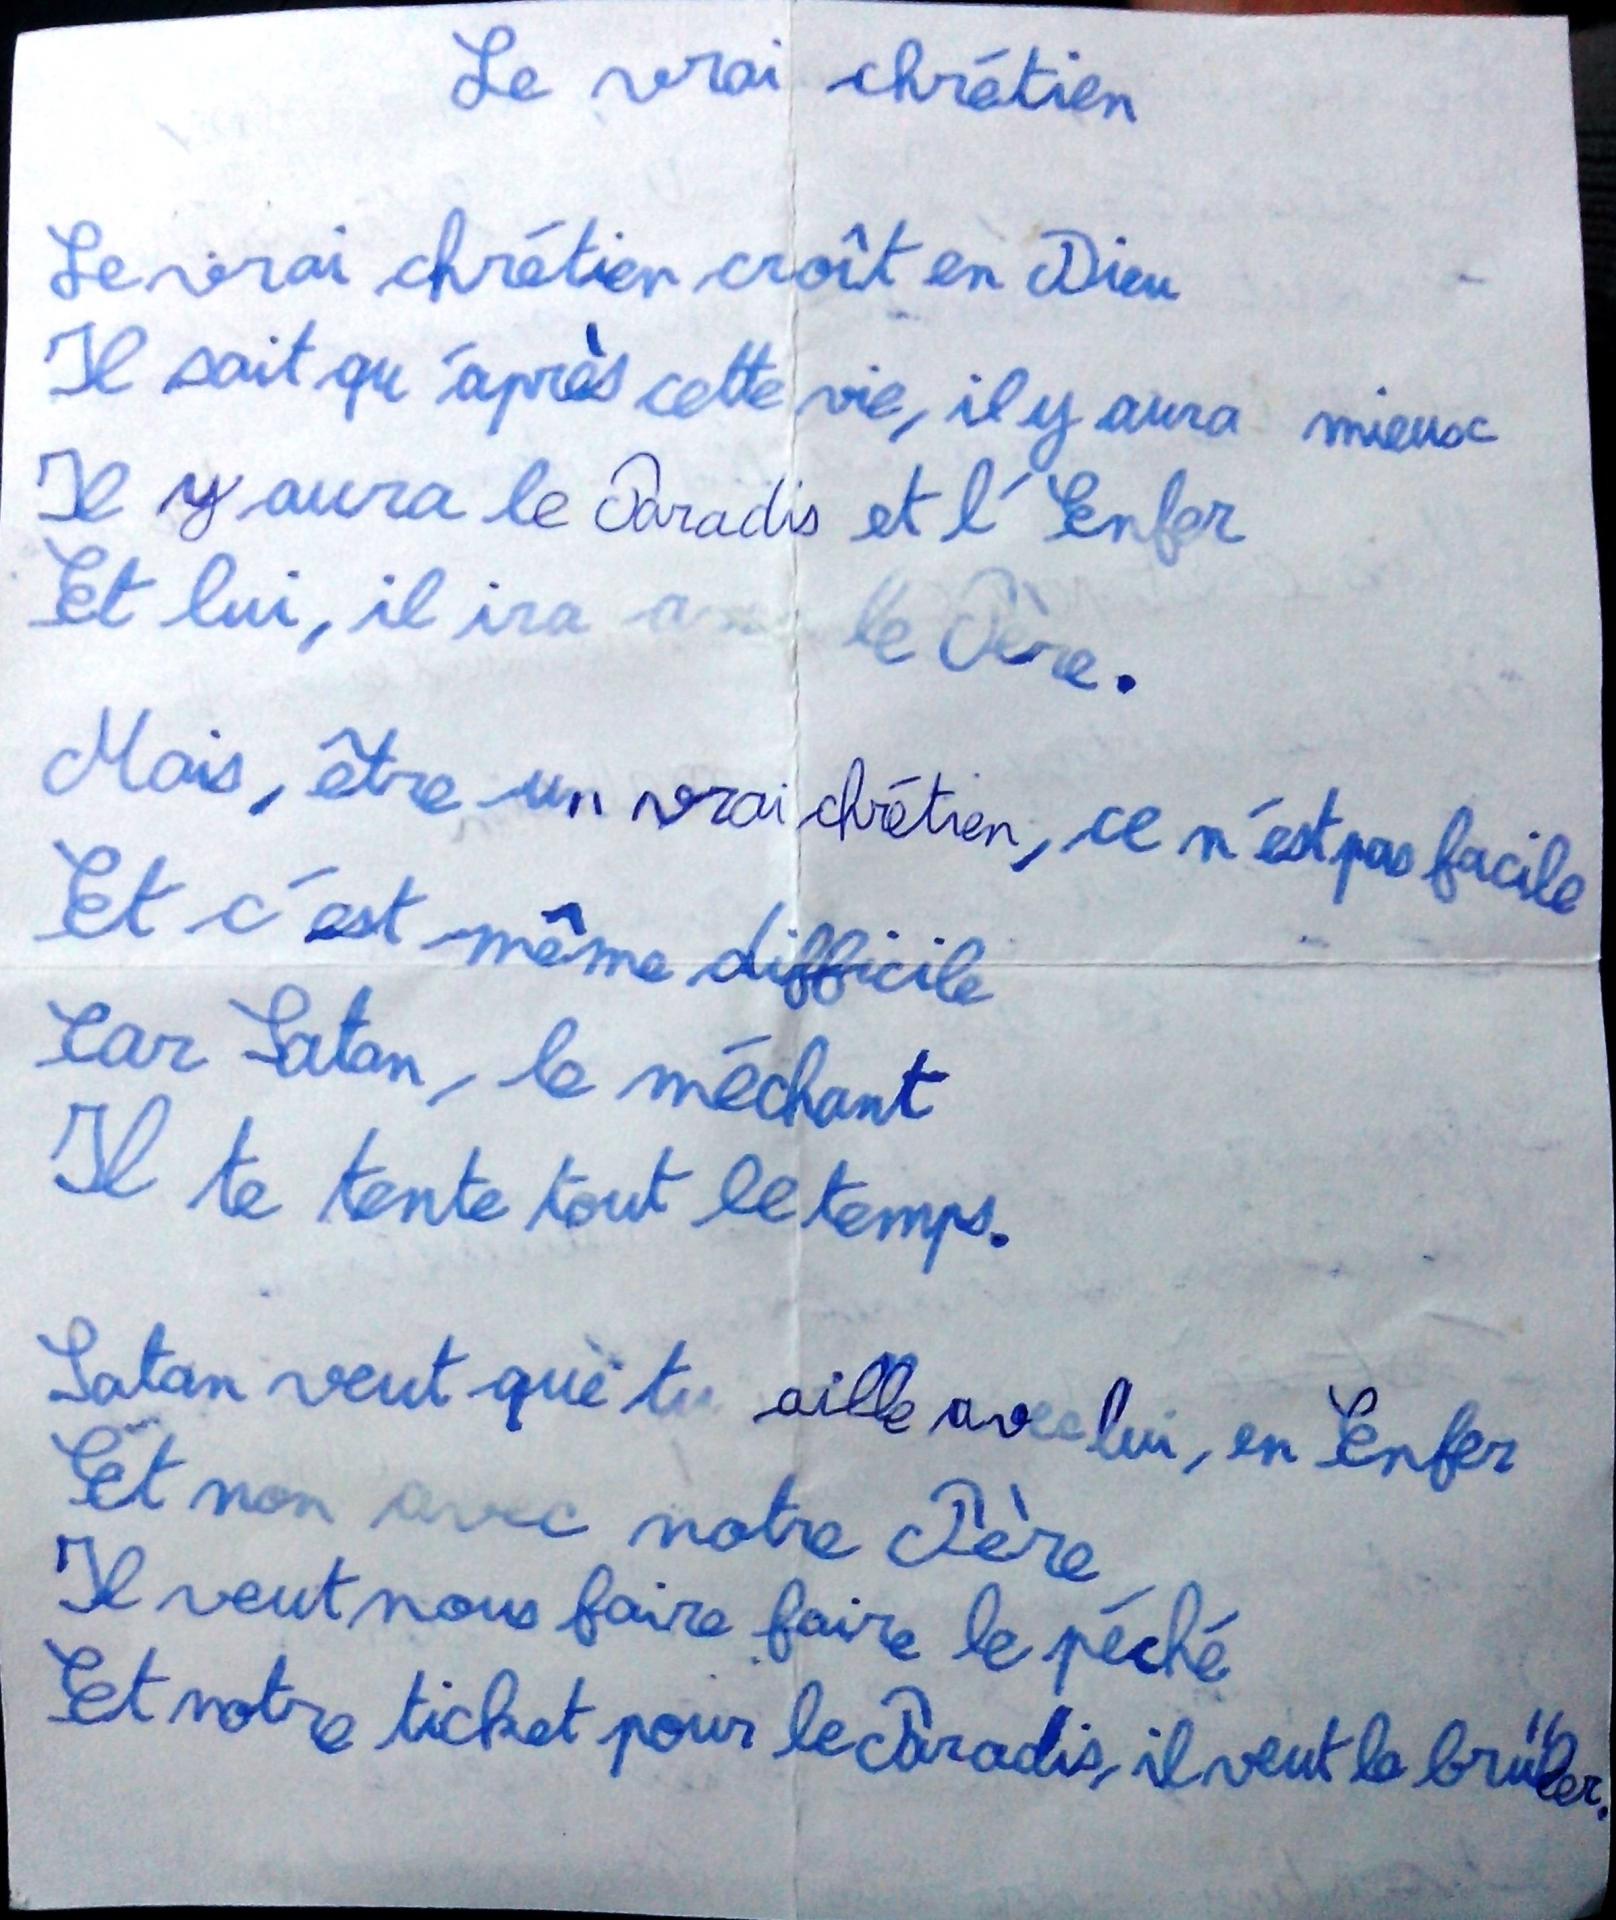 Le vrai chrétien
Le vrai chrétien croît en Dieu
Il sait qu'après cette vie, il y aura mieux
Il y aura le Paradis et l'Enfer
Et lui, il ira le Père.
Mais, être un vrai chrétien, ce n'est pas facile
Et c'est même difficile
Car Satan, le méchant
Il te tente tout le temps.
Satan veut que tu aille avec lui, en Enfer
Et non avec notre Père
Il veut nous faire faire le péché
Et notre ticket pour le Paradis, il veut le brûler.